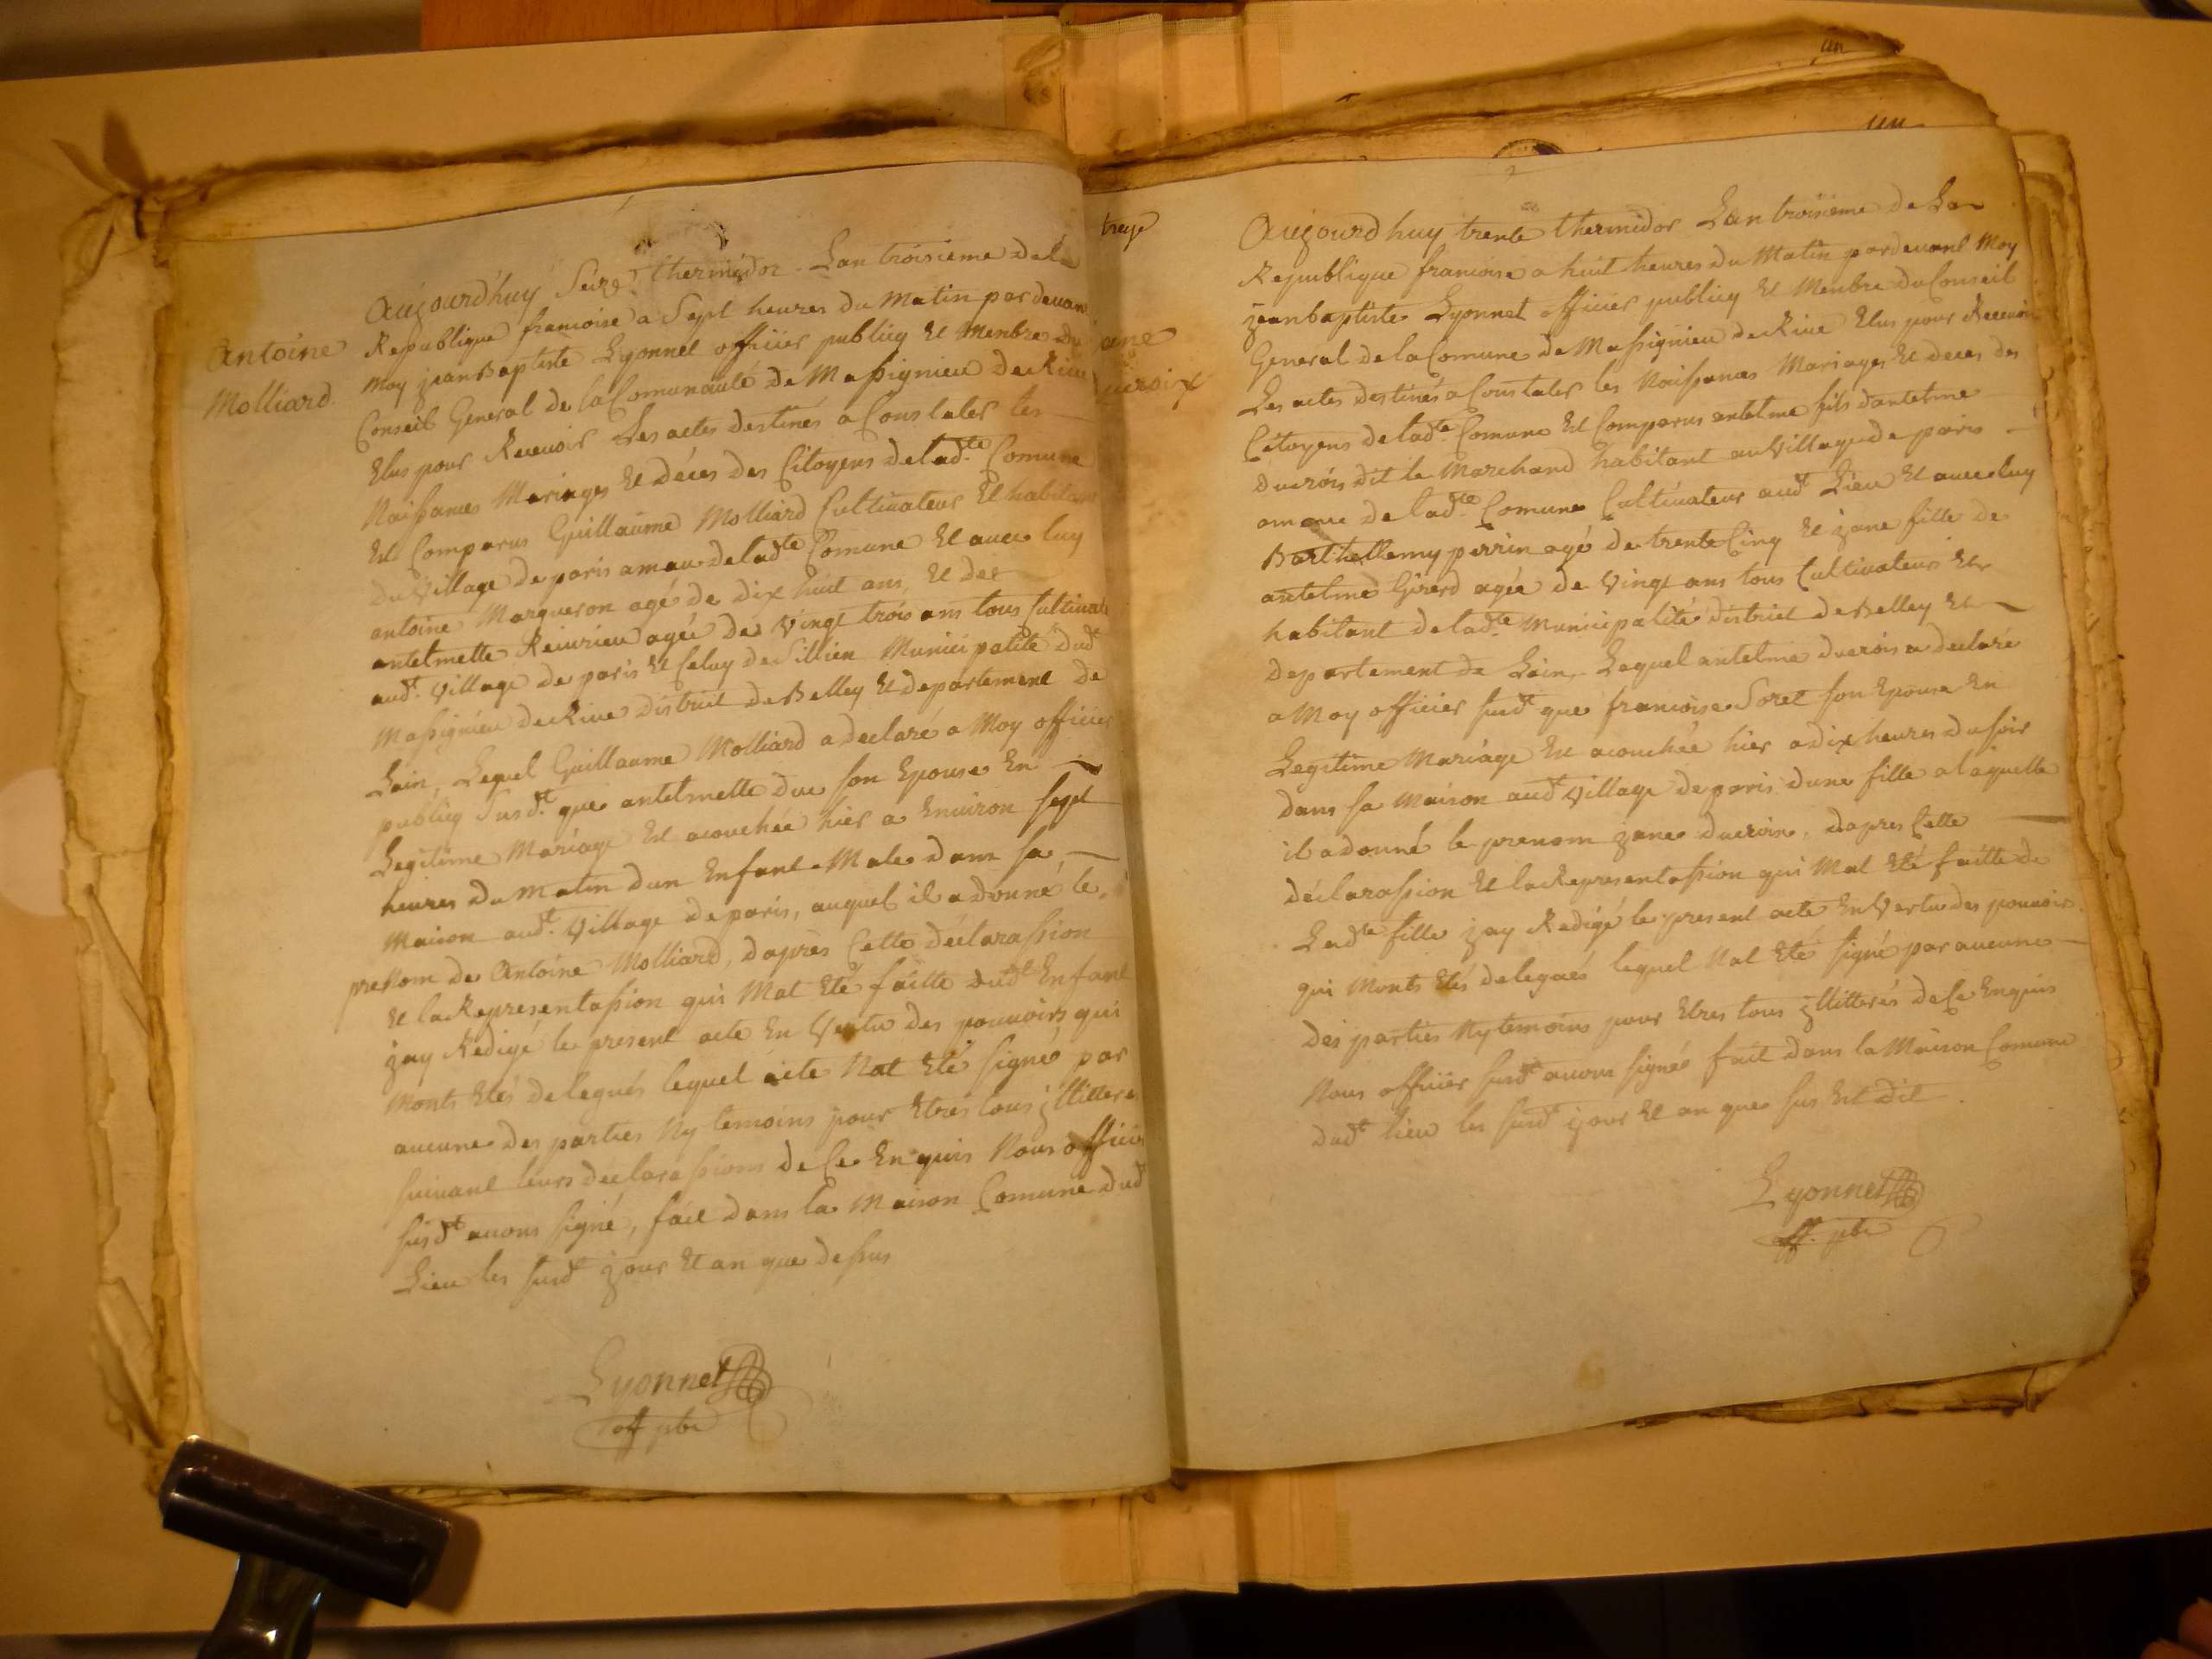 Antoine
Molliard
Aujourdhuy Seize thermidor Lan troisieme de la
Republique francoise a Sept heures du Matin pardevan
Moy jean Baptiste Lyonnet officier publicq Et Menbre du
Conseil General de la Comunauté de Massignieu de Rive
Elus pour Recevoir Les actes destinés a Constater les
Naissances Mariages Et déces des Citoyens de ladte Comune
Est Comparus Guillaume Molliard Cultivateur Et habitant
du Village de paris amau de ladte Comune Et avec luy
antoine Marqueron agé de dix huit ans, Et de
antelmette Reurieu agée de Vingt trois ans tous Cultivate
audt Village de paris Et Celuy de Sillien Municipalité dudt
Massignieu de Rive district de Belley Et departement de
Lain, Lequel Guillaume Molliard a declaré a Moy officier
publicq Susdt que antelmette duc son Epouse En
Legitime Mariage Est acouchée hier a Environ sept
heures du Matin dun Enfant Male dans sa
Maison audt Village de paris, auquel il a donné le
preNom de Antoine Molliard, dapres Cette déclarassion
Et la Representassion qui Mat Eté faitte dudt Enfant
jay Redigé le present acte En Vertu des pouvoirs qui
Monts Etés delegués lequel acte Nat Eté signé par
aucune des parties Ny temoins pour Etres tous jllitteres
suivant leurs declarassions de Ce Enquis Nous officier
susdt avons signé, fait dans la Maison Comune dudt
Lieu les susdt jour Et an que dessus
Lyonnet
off pbc
treize
Aujourdhuy trente thermidor Lan troisieme de La
Republique francoise a huit heures du Matin pardevant Moy
jean baptiste Lyonnet officier publicq Et Menbre du Conseil
General de la Comune de Massignieu de Rive Elus pour Recevoir
Les actes destinés a Constater les Naissances Mariages Et deces des
Citoyens de ladte Comune Est Comparus antelme fils dantelme
ducrois dit le Marchand habitant au Village de paris
amau de ladte Comune Cultivateur audt Lieu Et avec luy
Barthellemy perrin agé de trente Cinq Et jane fille de
antelme Girerd agée de Vingt ans tous Cultivateurs Et
habitant de ladte Municipalité district de Belley Et
departement de Lain, Lequel antelme ducrois a declaré
a Moy officier susdt que francoise Soret son Epouse En
Legitime Mariage Est acouchée hier a dix heures du soir
dans sa Maison audt Village de paris dune fille a laquelle
il a donné le prenom jane ducroix, dapres Cette
déclarassion Et la Representassion qui Mat Eté faitte de
Ladte fille jay Redigé le present acte En Vertu des pouvoir
qui Monts Etés delegués lequel Nat Eté signé par aucune
des parties Ny temoins pour Etres tous jllitterés de Ce Enquis
Nous officier susdt avons signés fait dans la Maison Comune
dudt lieu les susdt jour Et an que sus Est dit
Lyonnet
off. pbc